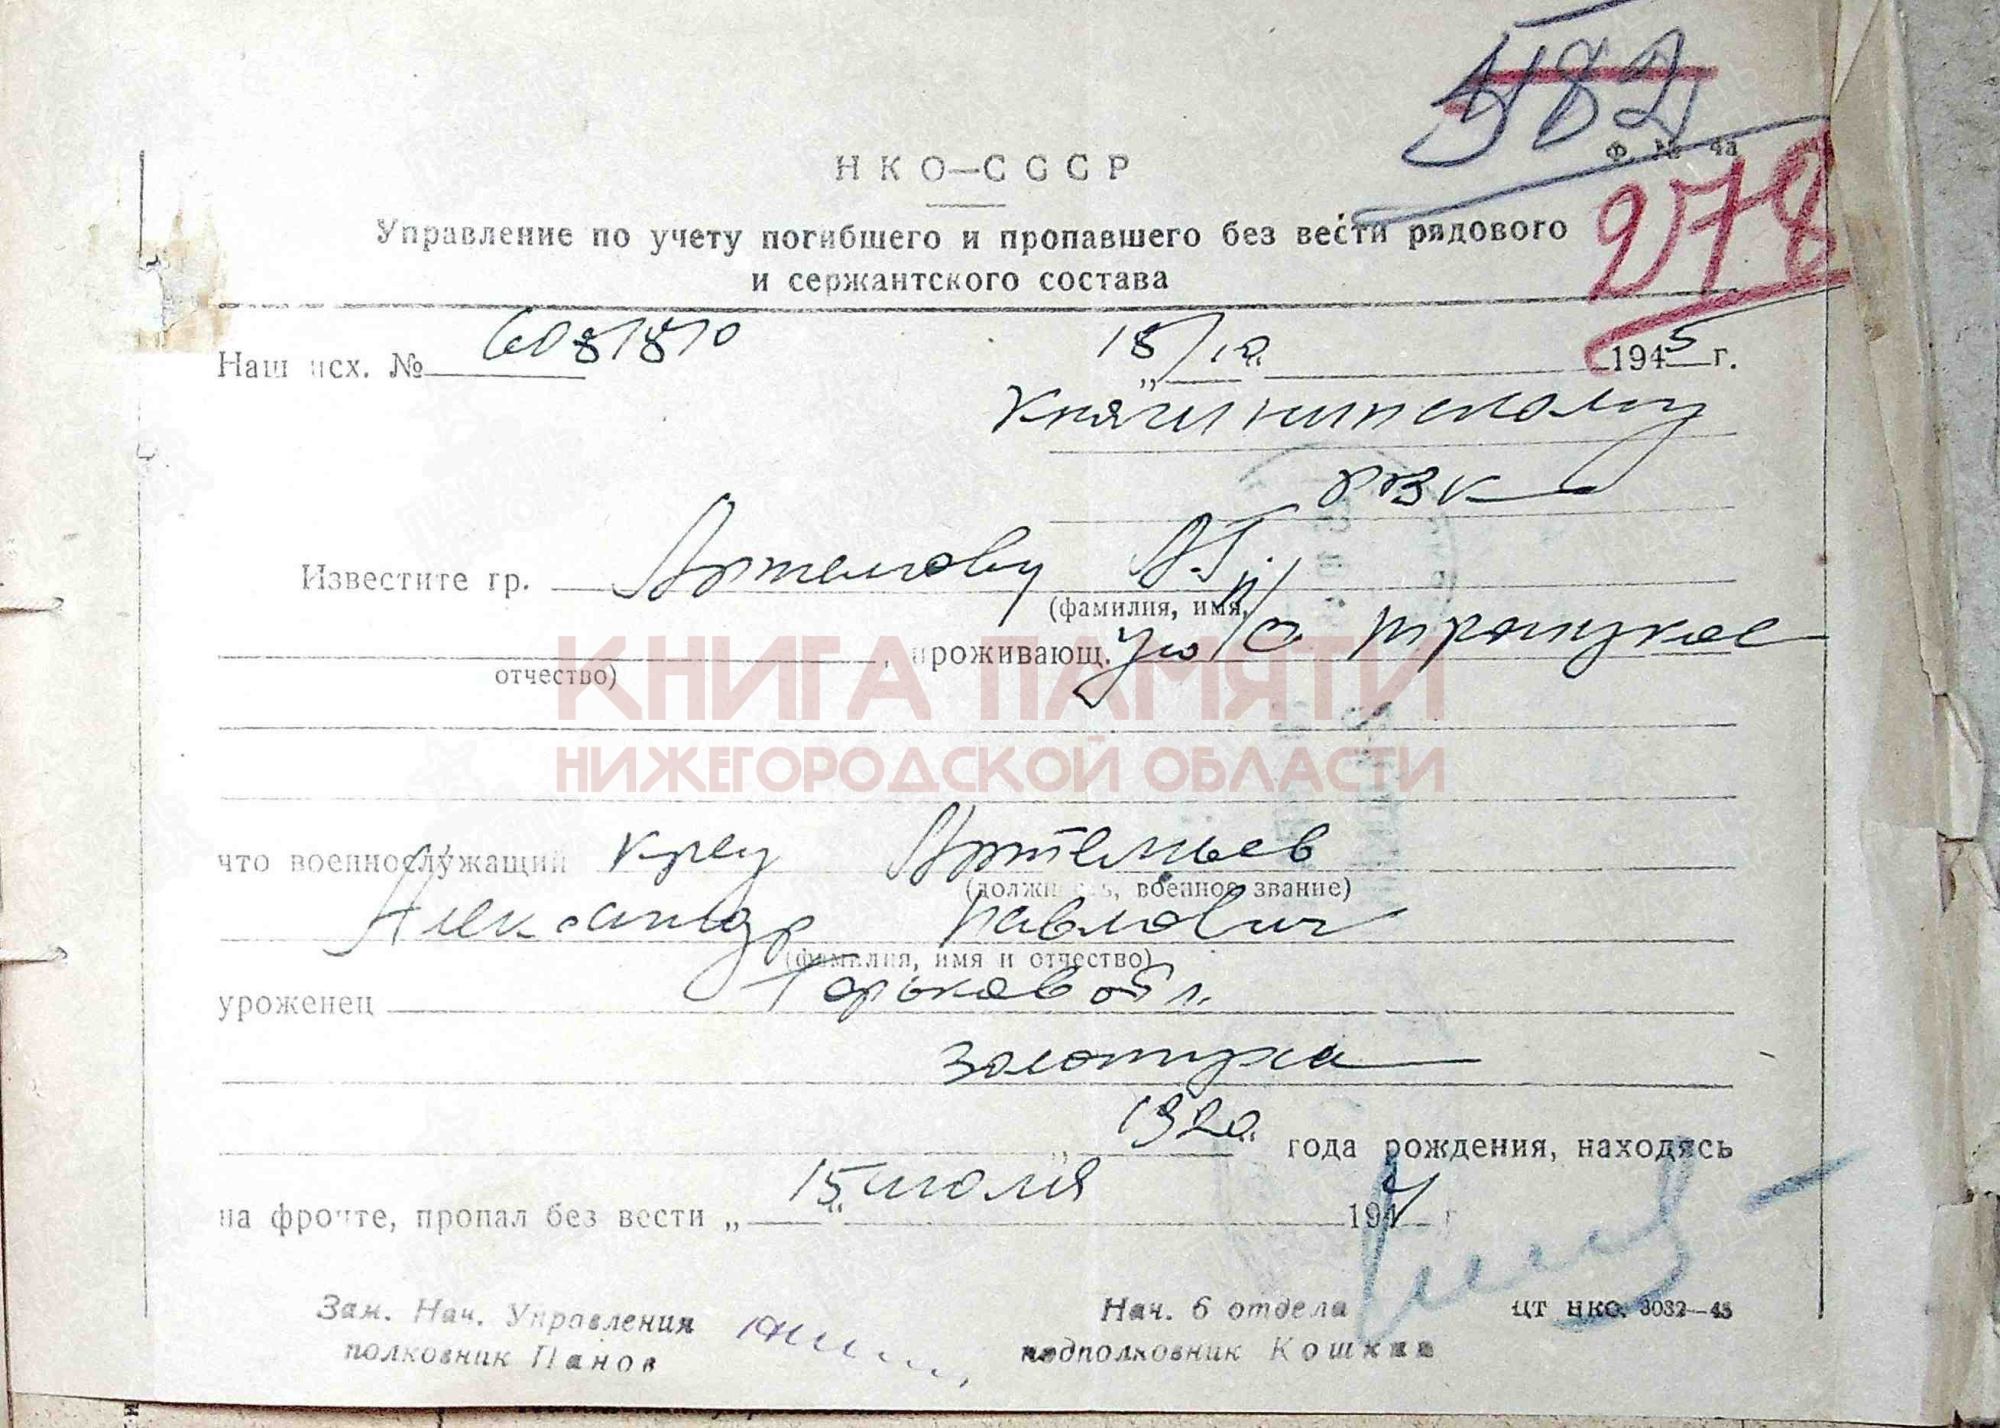 582
Ф. № 4а
278
НКО—СССР
Управление по учету погибшего и пропавшего без вести рядового
и сержантского состава
Наш исх. № 18/10 1945 г.
Княгининскому
РВК
Известите гр. А.Г.
(фамилия, имя,
отчество) , проживающ. п/о Троицкое
КНИГА ПАМЯТИ
НИЖЕГОРОДСКОЙ ОБЛАСТИ
что военнослужащий кр-ец Артемьев
(должность, военное звание)
Александр Павлович
(фамилия, имя и отчество)
уроженец Горьков обл.
Золотуха
„1920“ года рождения, находясь
на фронте, пропал без вести „15“ июля 194 г
Зам. Нач. Управления
полковник Панов
Нач. 6 отдела
подполковник Кошкин
ЦТ НКО. 3032—45